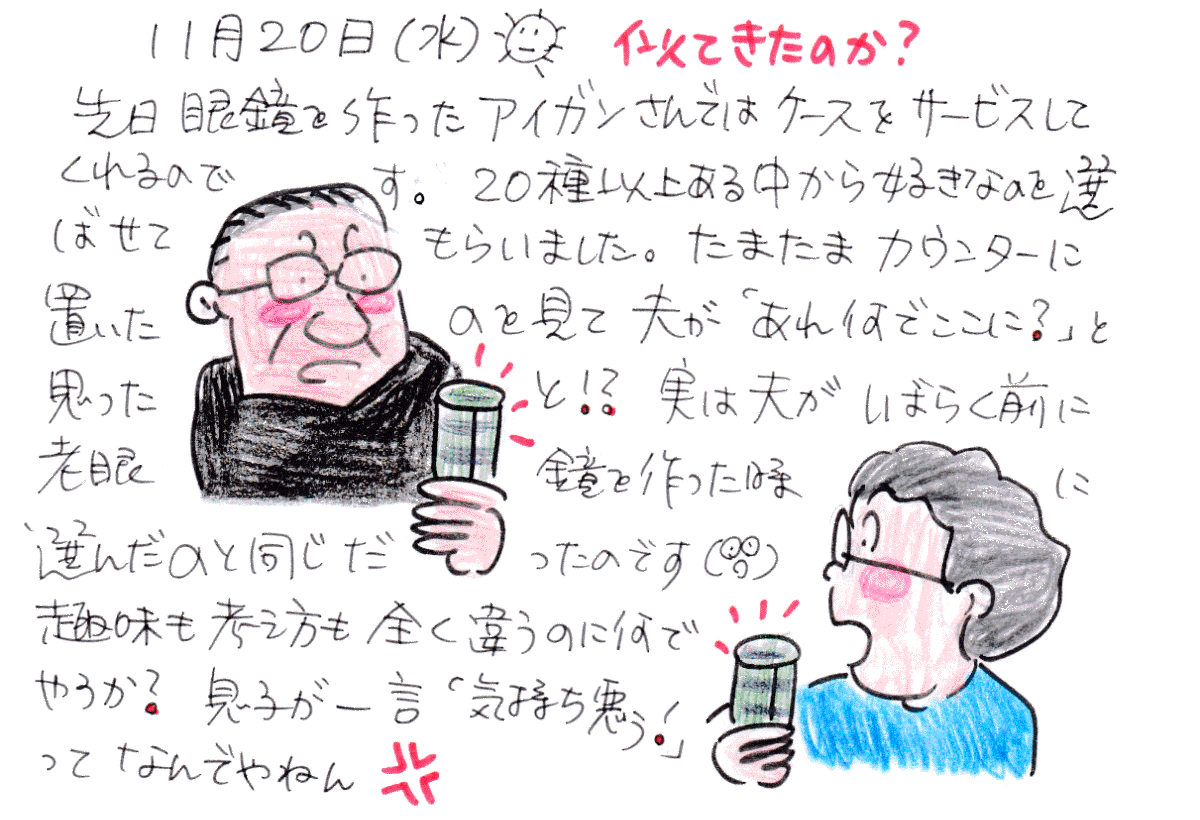 11月20日(水) 似てきたのか?
先日眼鏡を作ったアイガンさんではケースをサービスして
くれるのです。20種以上ある中から好きなのを選
ばせてもらいました。たまたまカウンターに
置いたのを見て夫が「あれ何でここに?」と
思ったと!?実は夫がしばらく前に
老眼鏡を作った時に
選んだのと同じだったのです
趣味も考え方も全く違うのに何で
やろか?息子が一言「気持ち悪う!」
ってなんでやねん